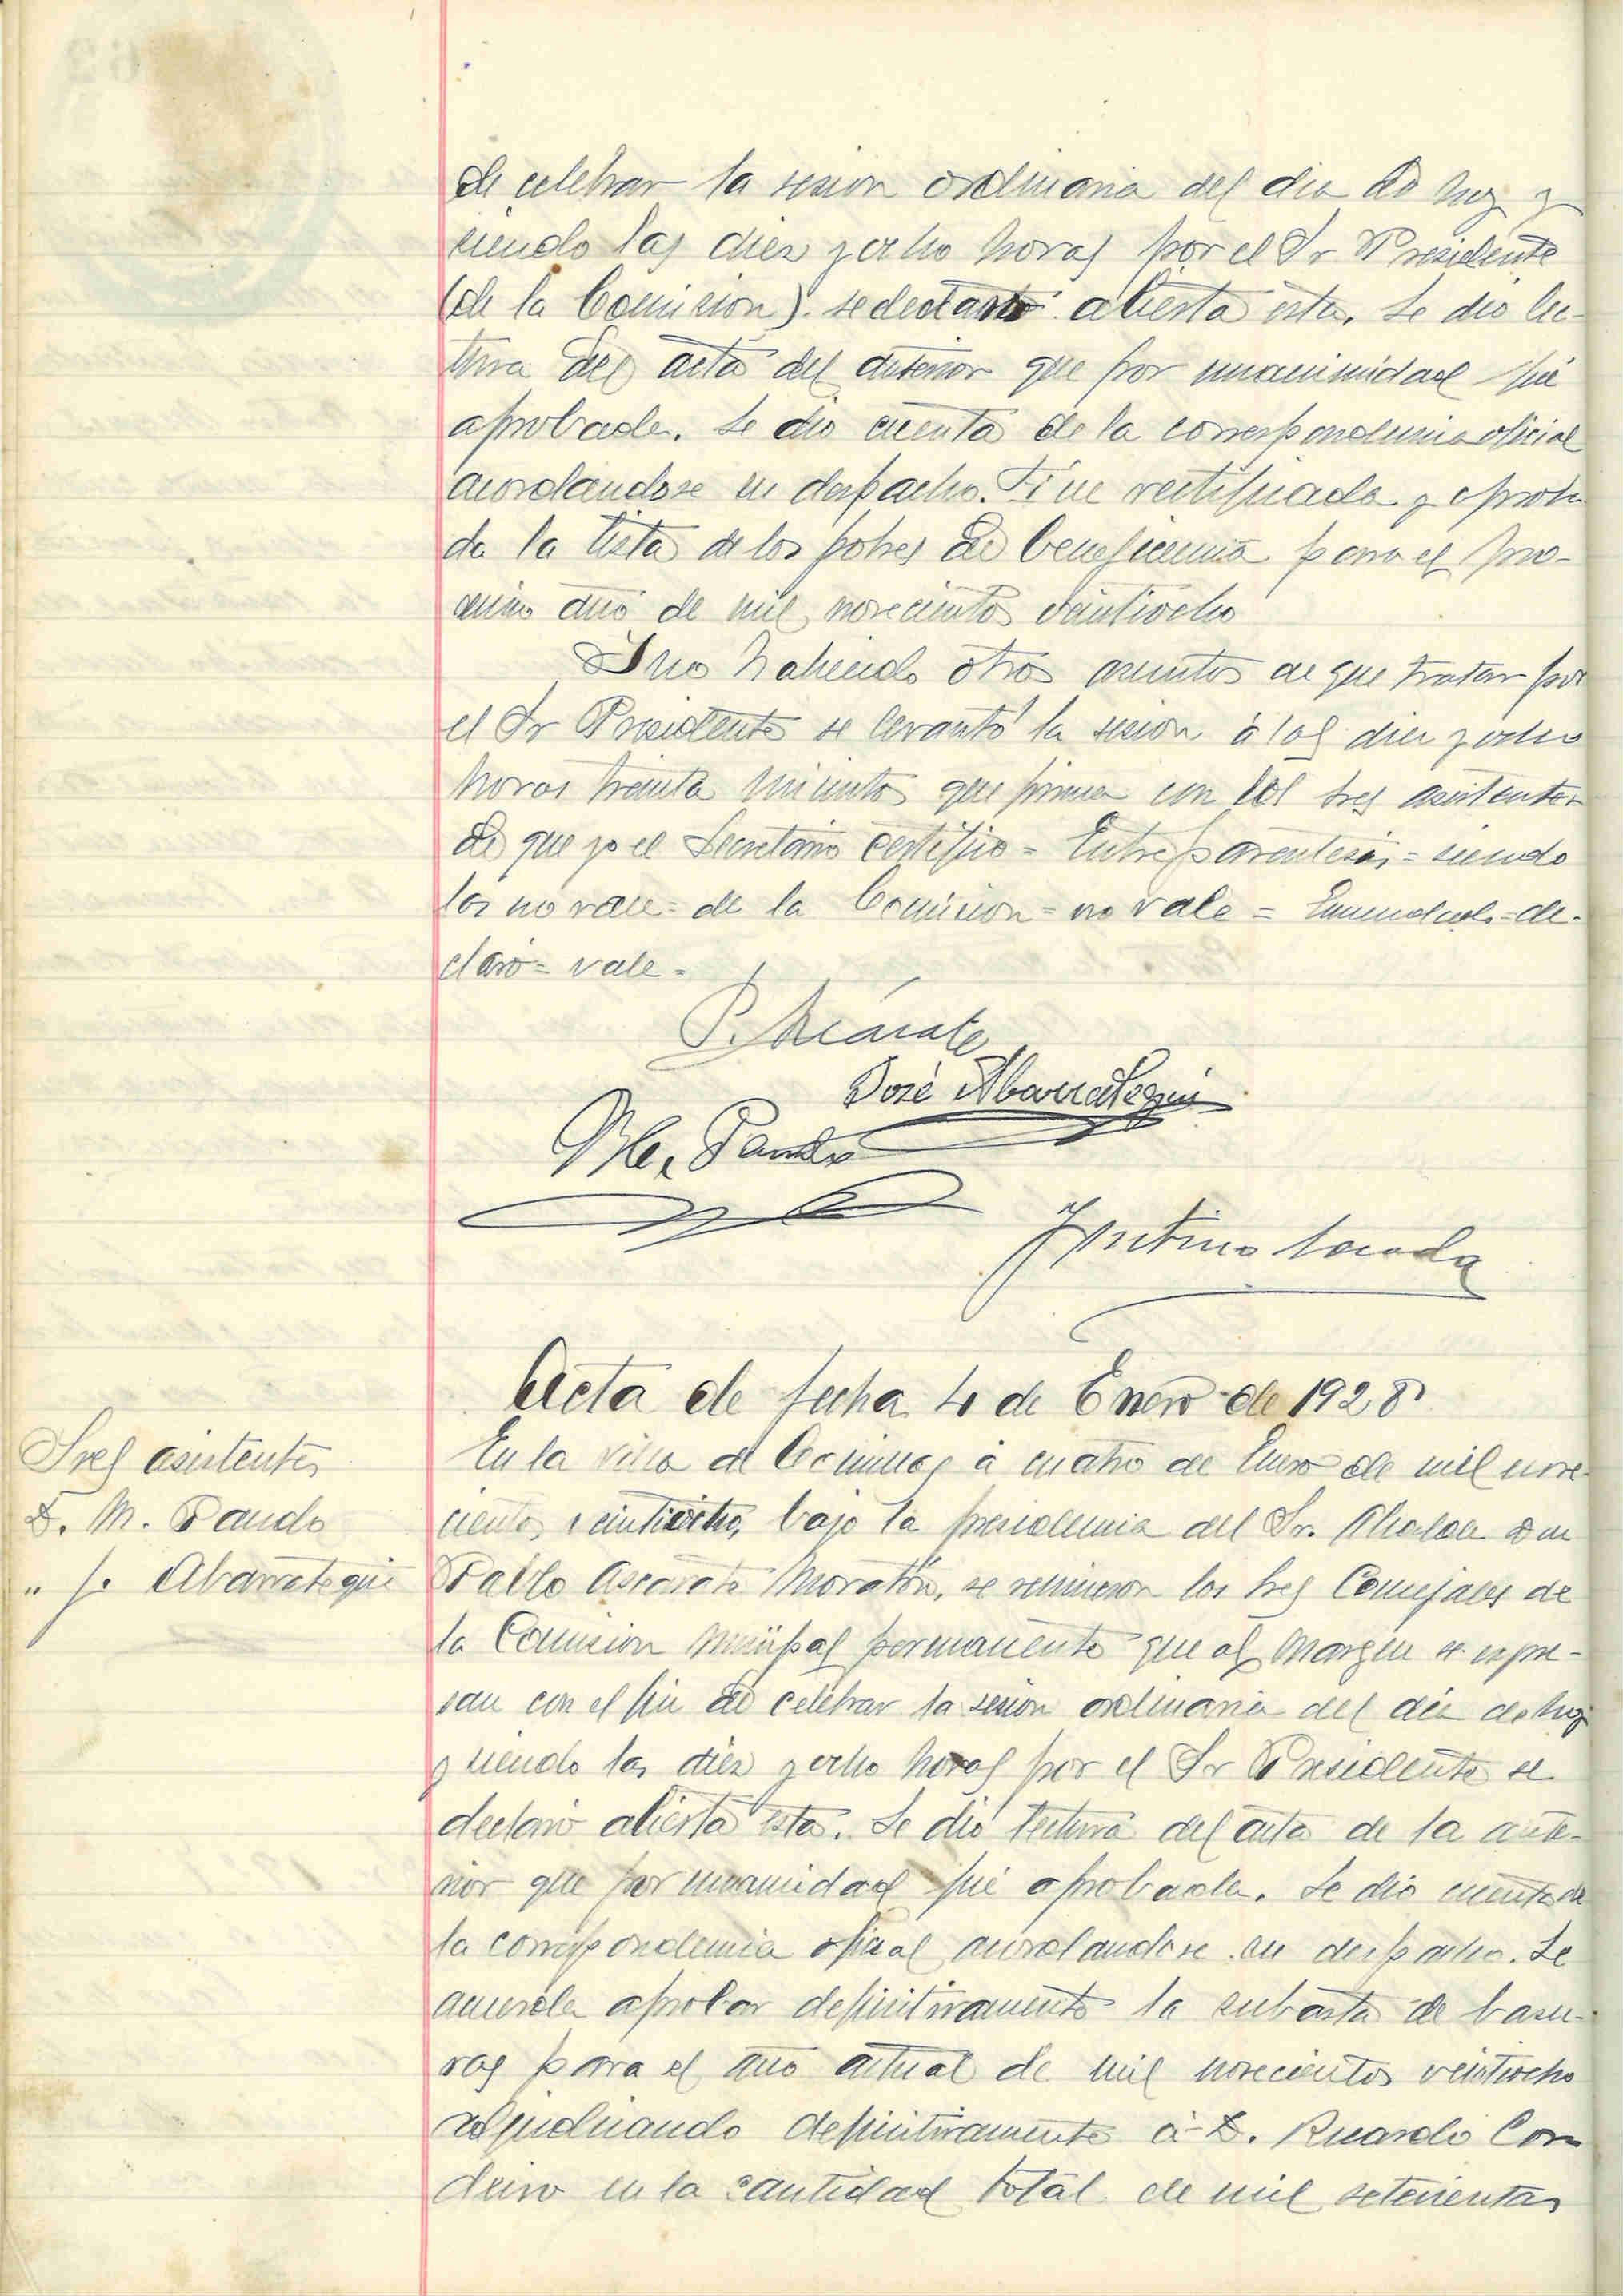 de celebrar la sesion ordinaria del dia de hoy y
siendo las diez y ocho horas por el Sr Presidente
(de la Comision) se declaró abierta esta. Se dió lec-
tura del acta del anterior que por unanimidad fué
aprobada. Se dió cuenta de la correspondencia oficial
acordandose su despacho. Fué rectificada y aproba
da la lista de los pobres de beneficencia para el pro-
ximo año de mil novecientos veintiocho
Y no habiendo otros asuntos de que tratar por
el Sr Presidente se levantó la sesion á las diez y ocho
horas treinta minutos que firma con los sres asistentes
de que yo el Secretario certifico = Entreparentesis = siendo
las no vale = de la Comision = no vale = Enmendado = de-
claró = vale =
P. Azcárate
José Abarrategui
M. Pando
Acta de fecha 4 de Enero de 1928
Sres asistentes
D. M. Pando
" J. Abarrategui
En la villa de Comillas á cuatro de Enero de mil nove-
cientos veintiocho, bajo la presidencia del Sr. Alcalde Don
Pablo Azcarate Moratón, se reunieron los sres Concejales de
la Comision Municipal permanente que al margen se expre-
san con el fin de celebrar la sesion ordinaria del dia de hoy
y siendo las diez y ocho horas por el Sr Presidente se
declaró abierta esta. Se dió lectura del acta de la ante-
rior que por unanimidad fué aprobada. Se dió cuenta de
la correspondencia oficial acordandose su despacho. Se
acuerda aprobar definitivamente la subasta de basu-
ras para el año actual de mil novecientos veintiocho
adjudicando definitivamente á D. Ricardo Cor
deiro en la cantidad total de mil setecientas